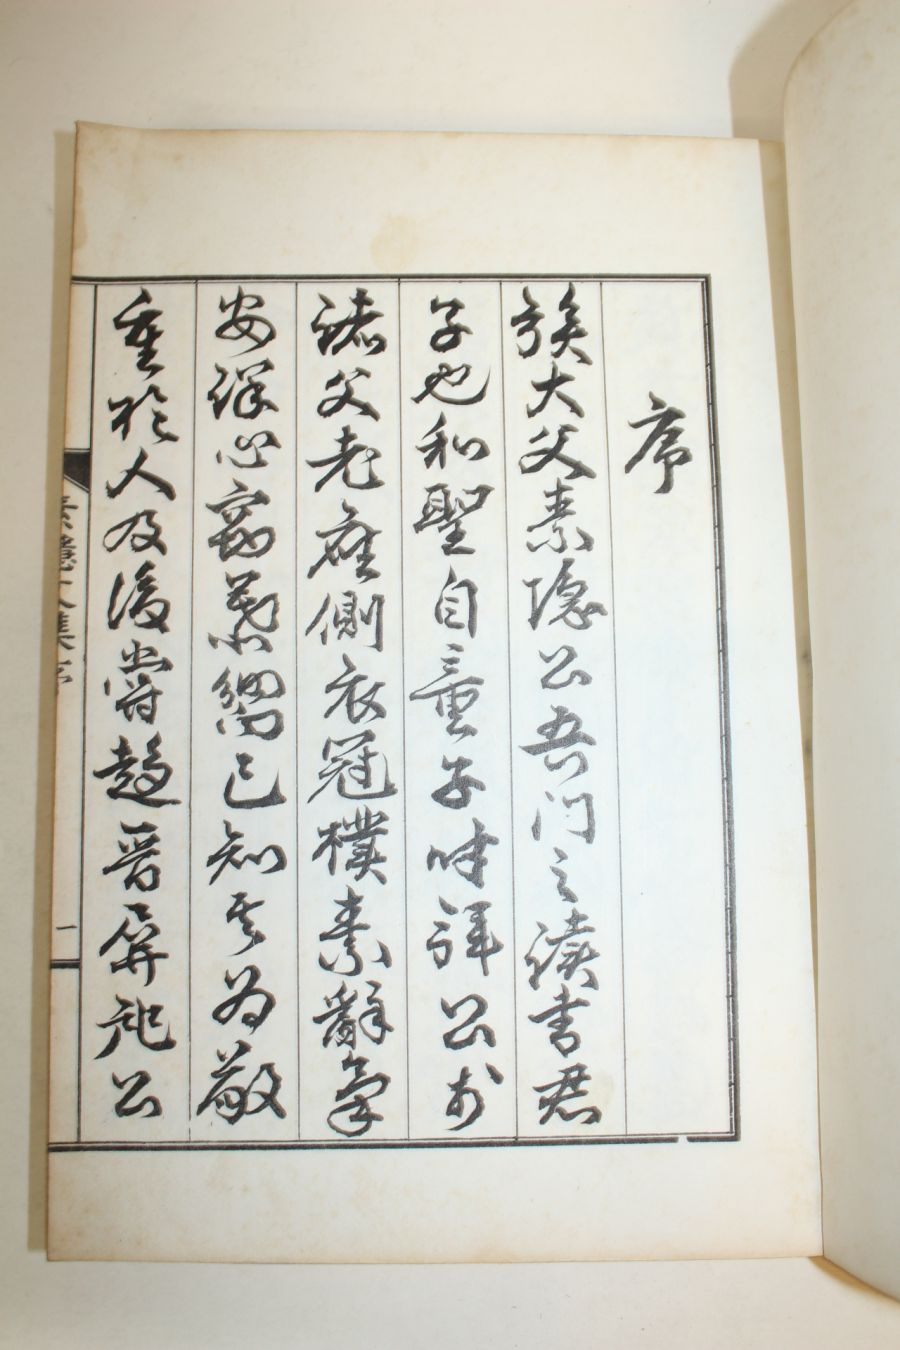 序
族大父素隱公吾門之讀書君
子也和聖自童子時拜公於
諸父老座側衣冠樸素辭氣
安詳心竊慕嚮已知其爲敬
重於人及後嘗趨晉屛祀公
素隱集序
一